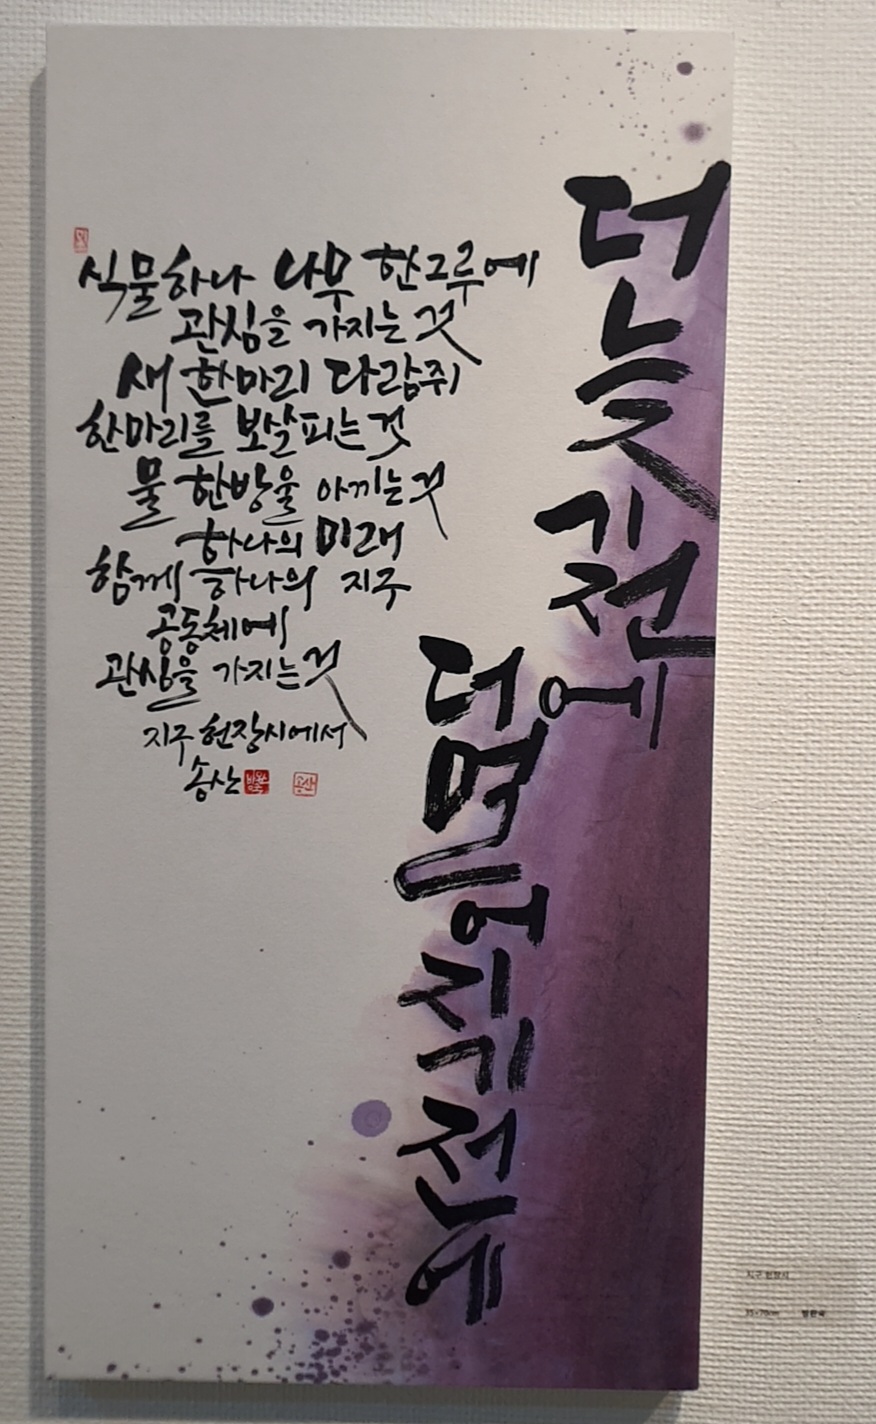 더 늦기 전에
더 멀어지기 전에
식물 하나 나무 한 그루에
관심을 가지는 것
새 한마리 다람쥐
한마리를 보살피는 것
물 한방울 아끼는 것
하나의 미래
함께 하나의 지구
공동체에
관심을 가지는 것
지구 헌장시에서
송산
지구 헌장시
35×70cm